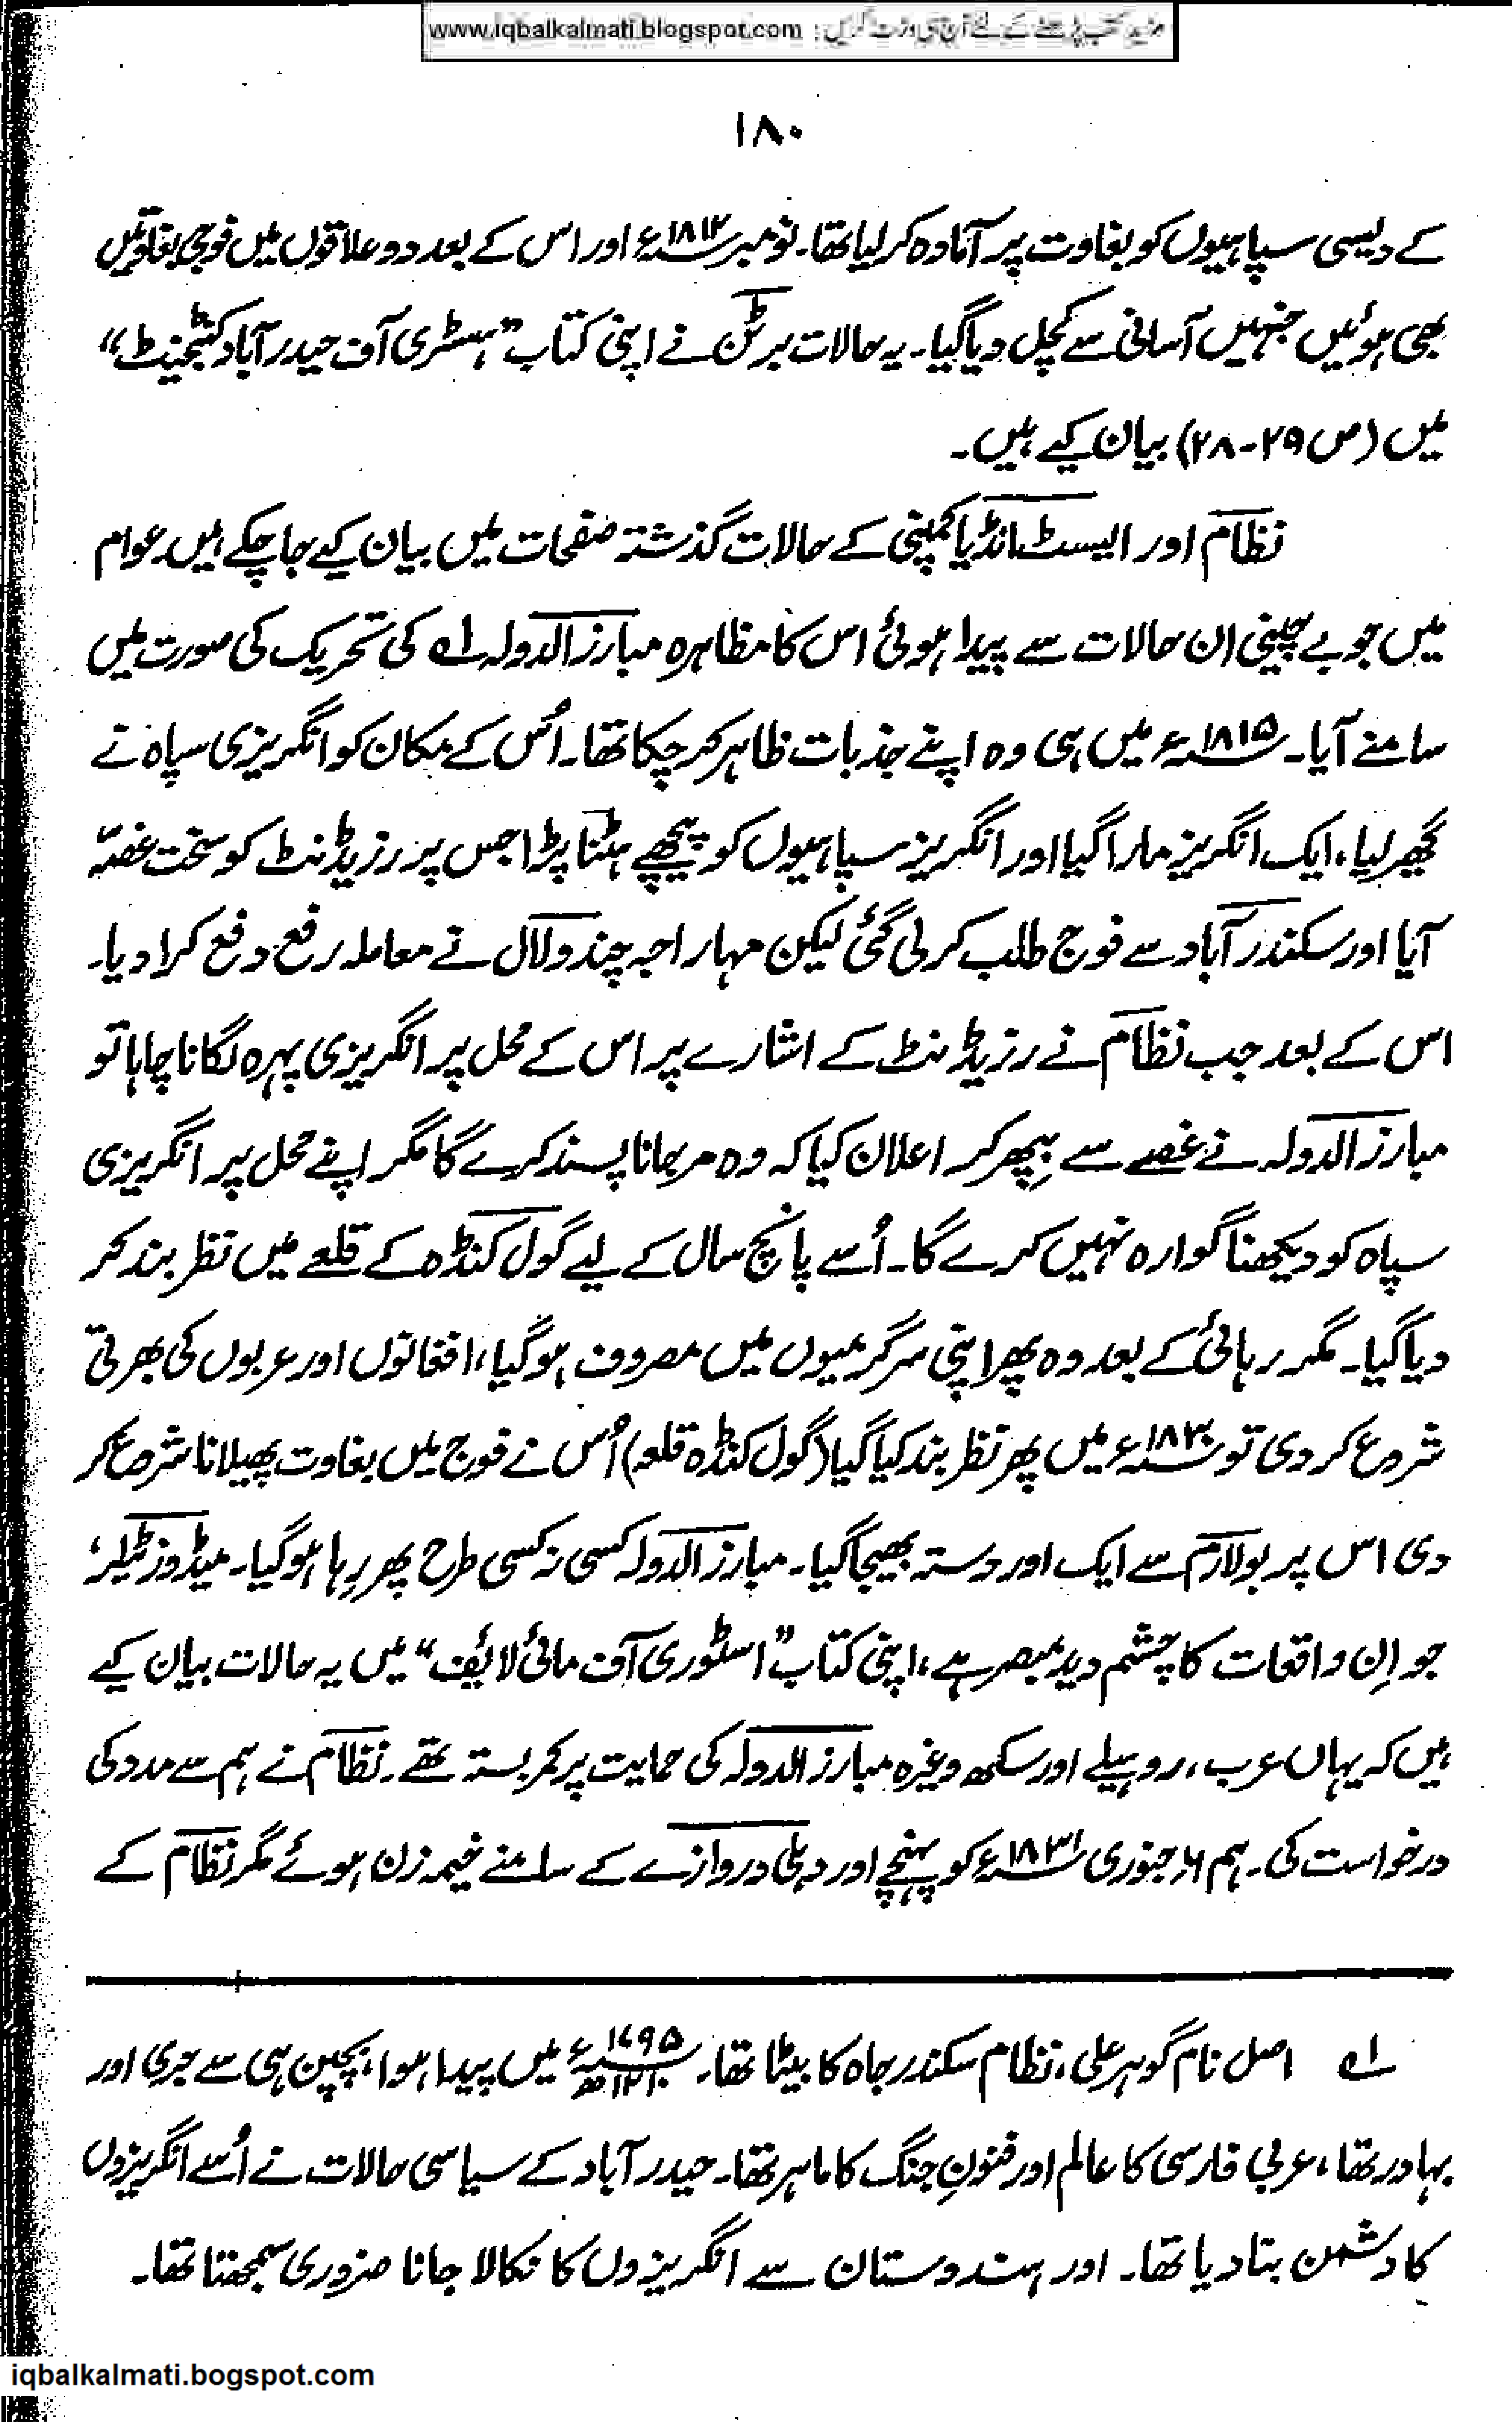 مزید کتب پڑھنے کے لئے آج ہی وزٹ کریں : www.iqbalkalmati.blogspot.com
۱۸۰
کے دیسی سپاہیوں کو بغاوت پر آمادہ کر لیا تھا۔ نومبر ۱۸۱۲ء اور اس کے بعد دو علاقوں میں فوجی بغاوتیں
بھی ہوئیں جنہیں آسانی سے کچل دیا گیا۔ یہ حالات برٹن نے اپنی کتاب ”ہسٹری آف حیدر آباد کنٹجینٹ“
میں (ص ۲۹-۲۸) بیان کیے ہیں۔
نظام اور ایسٹ انڈیا کمپنی کے حالات گذشتہ صفحات میں بیان کیے جا چکے ہیں۔ عوام
میں جو بے چینی ان حالات سے پیدا ہوئی اس کا مظاہرہ مبارز الدولہ لہ کی تحریک کی صورت میں
سامنے آیا۔ ۱۸۱۵ء میں ہی وہ اپنے جذبات ظاہر کر چکا تھا۔ اُس کے مکان کو انگریزی سپاہ نے
گھیر لیا، ایک انگریز مارا گیا اور انگریز سپاہیوں کو پیچھے ہٹنا پڑا جس پر رزیڈنٹ کو سخت غصّہ
آیا اور سکندر آباد سے فوج طلب کر لی گئی لیکن مہاراجہ چندولال نے معاملہ رفع دفع کرا دیا۔
اس کے بعد جب نظام نے رزیڈنٹ کے اشارے پر اس کے محل پر انگریزی پہرہ لگانا چاہا تو
مبارز الدولہ نے غصے سے بپھر کر اعلان کیا کہ وہ مرجانا پسند کرے گا مگر اپنے محل پر انگریزی
سپاہ کو دیکھنا گوارہ نہیں کرے گا۔ اُسے پانچ سال کے لیے گول کنڈہ کے قلعے میں نظر بند کر
دیا گیا۔ مگر رہائی کے بعد وہ پھر اپنی سرگرمیوں میں مصروف ہوگیا، افغانوں اور عربوں کی بھرتی
شروع کر دی تو ۱۸۳۰ء میں پھر نظر بند کیا گیا (گول کنڈہ قلعہ) اُس نے فوج میں بغاوت پھیلانا شروع کر
دی اس پر بولارم سے ایک اور دستہ بھیجا گیا۔ مبارز الدولہ کسی نہ کسی طرح پھر رہا ہوگیا۔ میڈوز ٹیلر،
جو اِن واقعات کا چشم دید مبصر ہے، اپنی کتاب ”اسٹوری آف مائی لائیف“ میں یہ حالات بیان کیے
ہیں کہ یہاں عرب، روہیلے اور سکھ وغیرہ مبارز الدولہ کی حمایت پر کمربستہ تھے۔ نظام نے ہم سے مدد کی
درخواست کی۔ ہم جنوری ۱۸۳۱ء کو پہنچے اور دہلی دروازے کے سامنے خیمہ زن ہوئے مگر نظام کے
لہ اصل نام گوہر علی، نظام سکندر جاہ کا بیٹا تھا۔ ۱۷۹۵ء ۱۲۱۰ھ میں پیدا ہوا، بچپن ہی سے جری اور
بہادر تھا، عربی فارسی کا عالم اور فنونِ جنگ کا ماہر تھا۔ حیدر آباد کے سیاسی حالات نے اُسے انگریزوں
کا دشمن بنا دیا تھا۔ اور ہندوستان سے انگریزوں کا نکالا جانا ضروری سمجھتا تھا۔
iqbalkalmati.bogspot.com